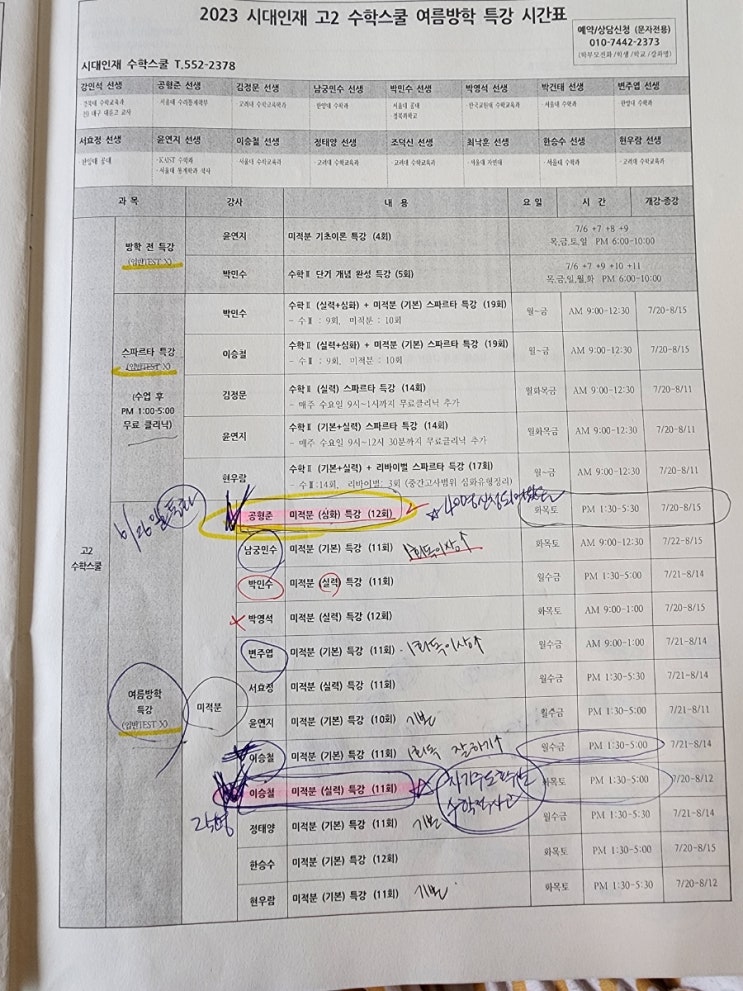 2023 시대인재 고2 수학스쿨 여름방학 특강 시간표
예약/상담신청 (문자전용)
010-7442-2373
(학부모전화/학생/학교/강의명)
시대인재 수학스쿨 T.552-2378
강민석 선생 공형준 선생 김정문 선생 남궁민수 선생 박민수 선생 박영석 선생 박건태 선생 변주엽 선생
· 경북대 수학교육과 · 서울대 수리통계학부 · 고려대 수학교육학과 · 한양대 수학과 · 서울대 공대 · 한국교원대 수학교육과 · 서울대 수학과 · 한양대 수학과
전) 대구 대륜고 교사 경북과학고
서효정 선생 윤연지 선생 이승철 선생 정태양 선생 조덕신 선생 최낙훈 선생 한승수 선생 현우람 선생
· 한양대 공대 · KAIST 수학과 서울대 수학교육과 · 고려대 수학교육과 고려대 수학교육과 · 서울대 자연대 · 서울대 수학과 · 고려대 수학교육과
· 서울대 통계학과 석사
과 목 강사 내 용 요 일 시 간 개강-종강
고2
수학스쿨
방학 전 특강
(입반TEST X)
윤연지 미적분 기초이론 특강 (4회) 7/6 +7 +8 +9
목,금,토,일 PM 6:00-10:00
박민수 수학Ⅱ 단기 개념 완성 특강 (5회) 7/6 +7 +9 +10 +11
목,금,일,월,화 PM 6:00-10:00
스파르타 특강
(입반TEST X)
(수업 후
PM 1:00-5:00
무료 클리닉)
박민수 수학Ⅱ (실력+심화) + 미적분 (기본) 스파르타 특강 (19회) 월~금 AM 9:00-12:30 7/20-8/15
- 수Ⅱ : 9회, 미적분 : 10회
이승철 수학Ⅱ (실력+심화) + 미적분 (기본) 스파르타 특강 (19회) 월~금 AM 9:00-12:30 7/20-8/15
- 수Ⅱ : 9회, 미적분 : 10회
김정문 수학Ⅱ (실력) 스파르타 특강 (14회) 월화목금 AM 9:00-12:30 7/20-8/11
- 매주 수요일 9시~1시까지 무료클리닉 추가
윤연지 수학Ⅱ (기본+실력) 스파르타 특강 (14회) 월화목금 AM 9:00-12:30 7/20-8/11
- 매주 수요일 9시~12시 30분까지 무료클리닉 추가
현우람 수학Ⅱ (기본+실력) + 리바이벌 스파르타 특강 (17회) 월~금 AM 9:00-12:30 7/20-8/11
- 수Ⅱ:14회, 리바이벌: 3회 (중간고사범위 심화유형정리)
여름방학
특강
(입반TEST X)
미적분
공형준 미적분 (심화) 특강 (12회) 화목토 PM 1:30-5:30 7/20-8/15
남궁민수 미적분 (기본) 특강 (11회) 1회독이상↑ 화목토 AM 9:00-12:30 7/22-8/15
박민수 미적분 (실력) 특강 (11회) 월수금 PM 1:30-5:00 7/21-8/14
박영석 미적분 (실력) 특강 (12회) 화목토 AM 9:00-1:00 7/20-8/15
변주엽 미적분 (기본) 특강 (11회) - 1회독이상↑ 월수금 AM 9:00-1:00 7/21-8/14
서효정 미적분 (실력) 특강 (11회) 월수금 PM 1:30-5:30 7/21-8/14
윤연지 미적분 (기본) 특강 (10회) 기본 월수금 PM 1:30-5:00 7/21-8/11
이승철 미적분 (기본) 특강 (11회) 1회독 잘하기↑ 월수금 PM 1:30-5:00 7/21-8/14
이승철 미적분 (실력) 특강 (11회) ☆ 화목토 PM 1:30-5:00 7/20-8/12
25명
정태양 미적분 (기본) 특강 (11회) 기본 월수금 PM 1:30-5:30 7/21-8/14
한승수 미적분 (기본) 특강 (12회) 화목토 PM 1:30-5:00 7/20-8/15
현우람 미적분 (기본) 특강 (11회) 기본 화목토 PM 1:30-5:30 7/20-8/12